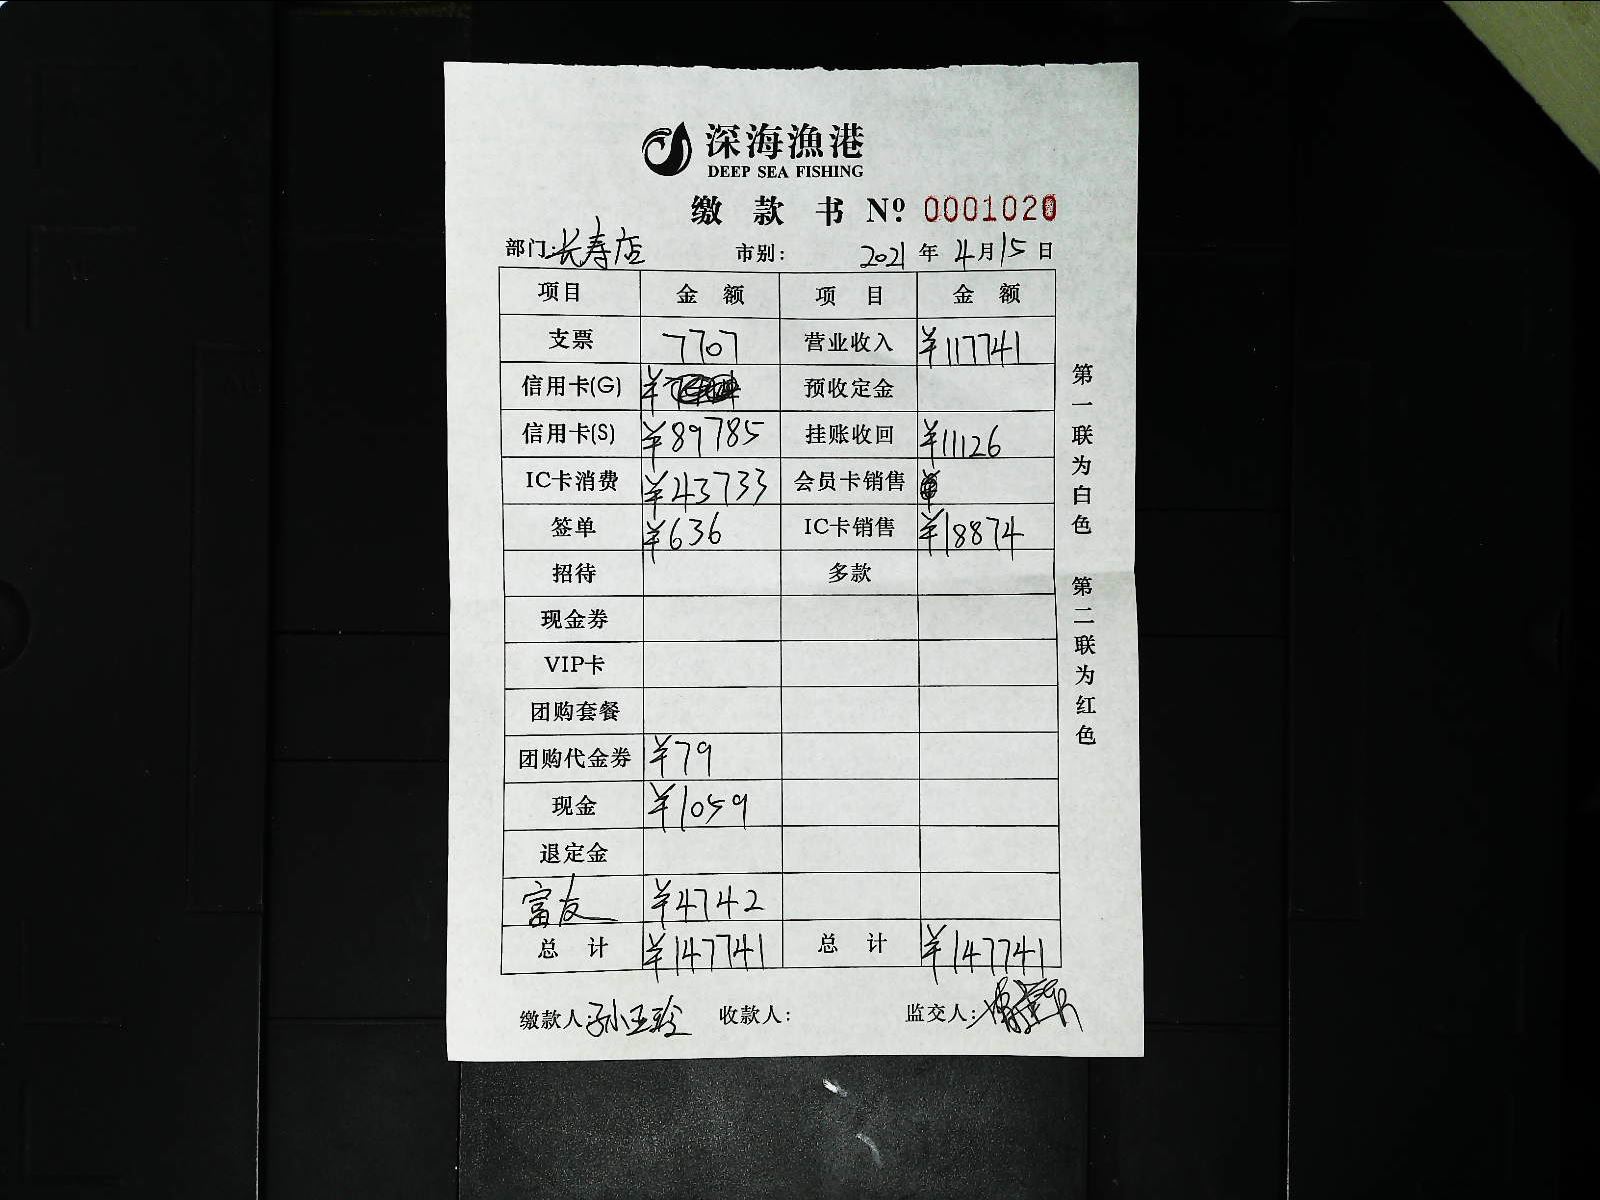 深海渔港
DEEP SEA FISHING
缴款书 Nº 0001020
部门:长寿店 市别: 2021年4月15日
项目 金额 项目 金额
支票 7707 营业收入 ¥117741
信用卡(G) ¥ 预收定金
信用卡(S) ¥89785 挂账收回 ¥11126
IC卡消费 ¥43733 会员卡销售
签单 ¥636 IC卡销售 ¥18874
招待 多款
现金券
VIP卡
团购套餐
团购代金券 ¥79
现金 ¥1059
退定金
富友 ¥4742
总计 ¥147741 总计 ¥147741
缴款人:孙玉玲 收款人: 监交人:
第一联为白色 第二联为红色